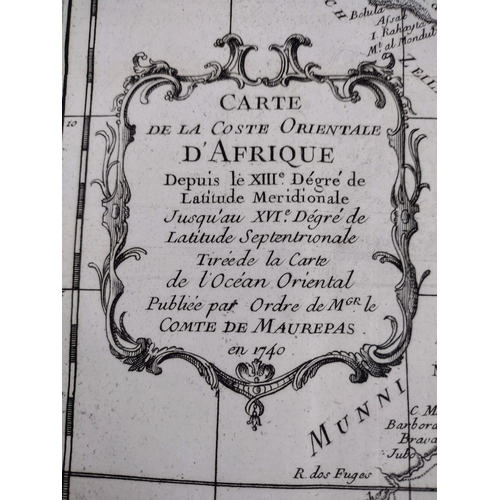 CH
Botula
Afsae
I Rahayta
Mt. al Mondub
ZEIL
10
CARTE
DE LA COSTE ORIENTALE
D'AFRIQUE
Depuis le XIIIe. Dégré de
Latitude Meridionale
Jusqu'au XVIe. Dégré de
Latitude Septentrionale
Tirée de la Carte
de l'Océan Oriental
Publiée par Ordre de MGR. le
COMTE DE MAUREPAS.
en 1740
MUNNI
C. M
Barbora
Brava
Jubo
R. dos Fuges